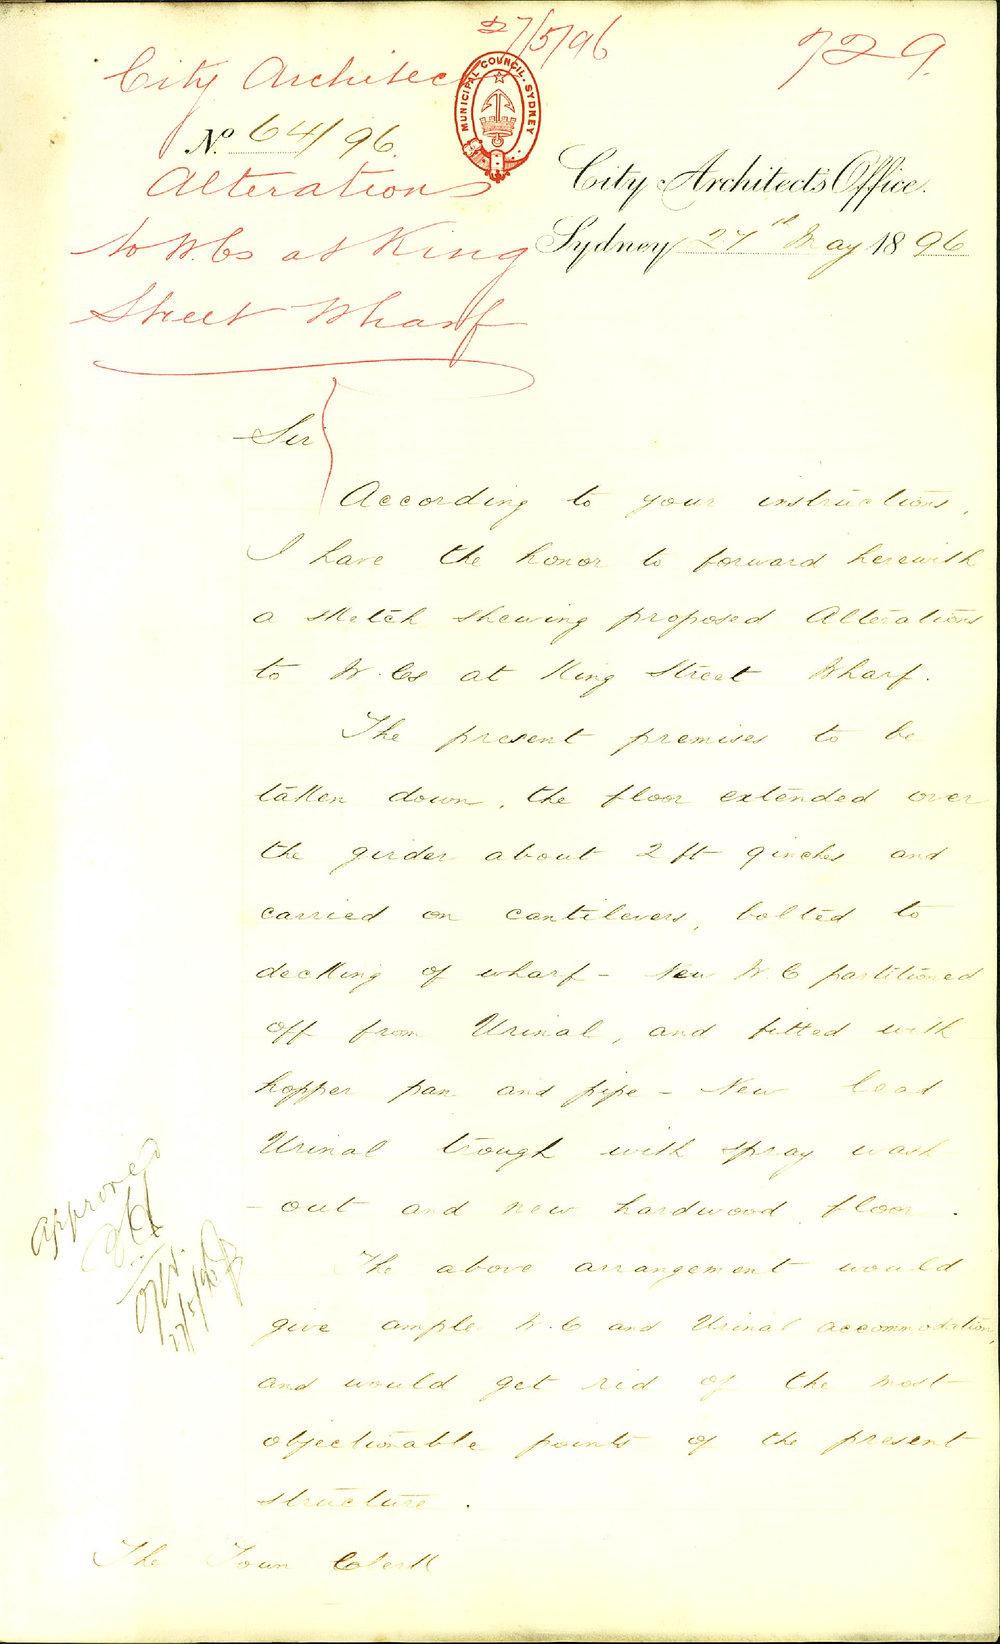 27/5/96
729.
City Architect
MUNICIPAL COUNCIL. SYDNEY
No. 64/96.
Alterations
to W.Cs at King
Street Wharf
City Architect's Office.
Sydney 27th May 1896
Sir
According to your instructions,
I have the honor to forward herewith
a sketch shewing proposed Alterations
to W.Cs at King Street Wharf.
The present premises to be
taken down, the floor extended over
the girder about 2 ft 9 inches and
carried on cantilevers, bolted to
decking of wharf - New W.C partitioned
off from Urinal, and fitted with
hopper pan and pipe - New lead
Urinal trough with spray wash
- out and new hardwood floor.
The above arrangement would
give ample W.C and Urinal accommodation,
and would get rid of the most
objectionable points of the present
structure.
Approved
27/5/96
The Town Clerk